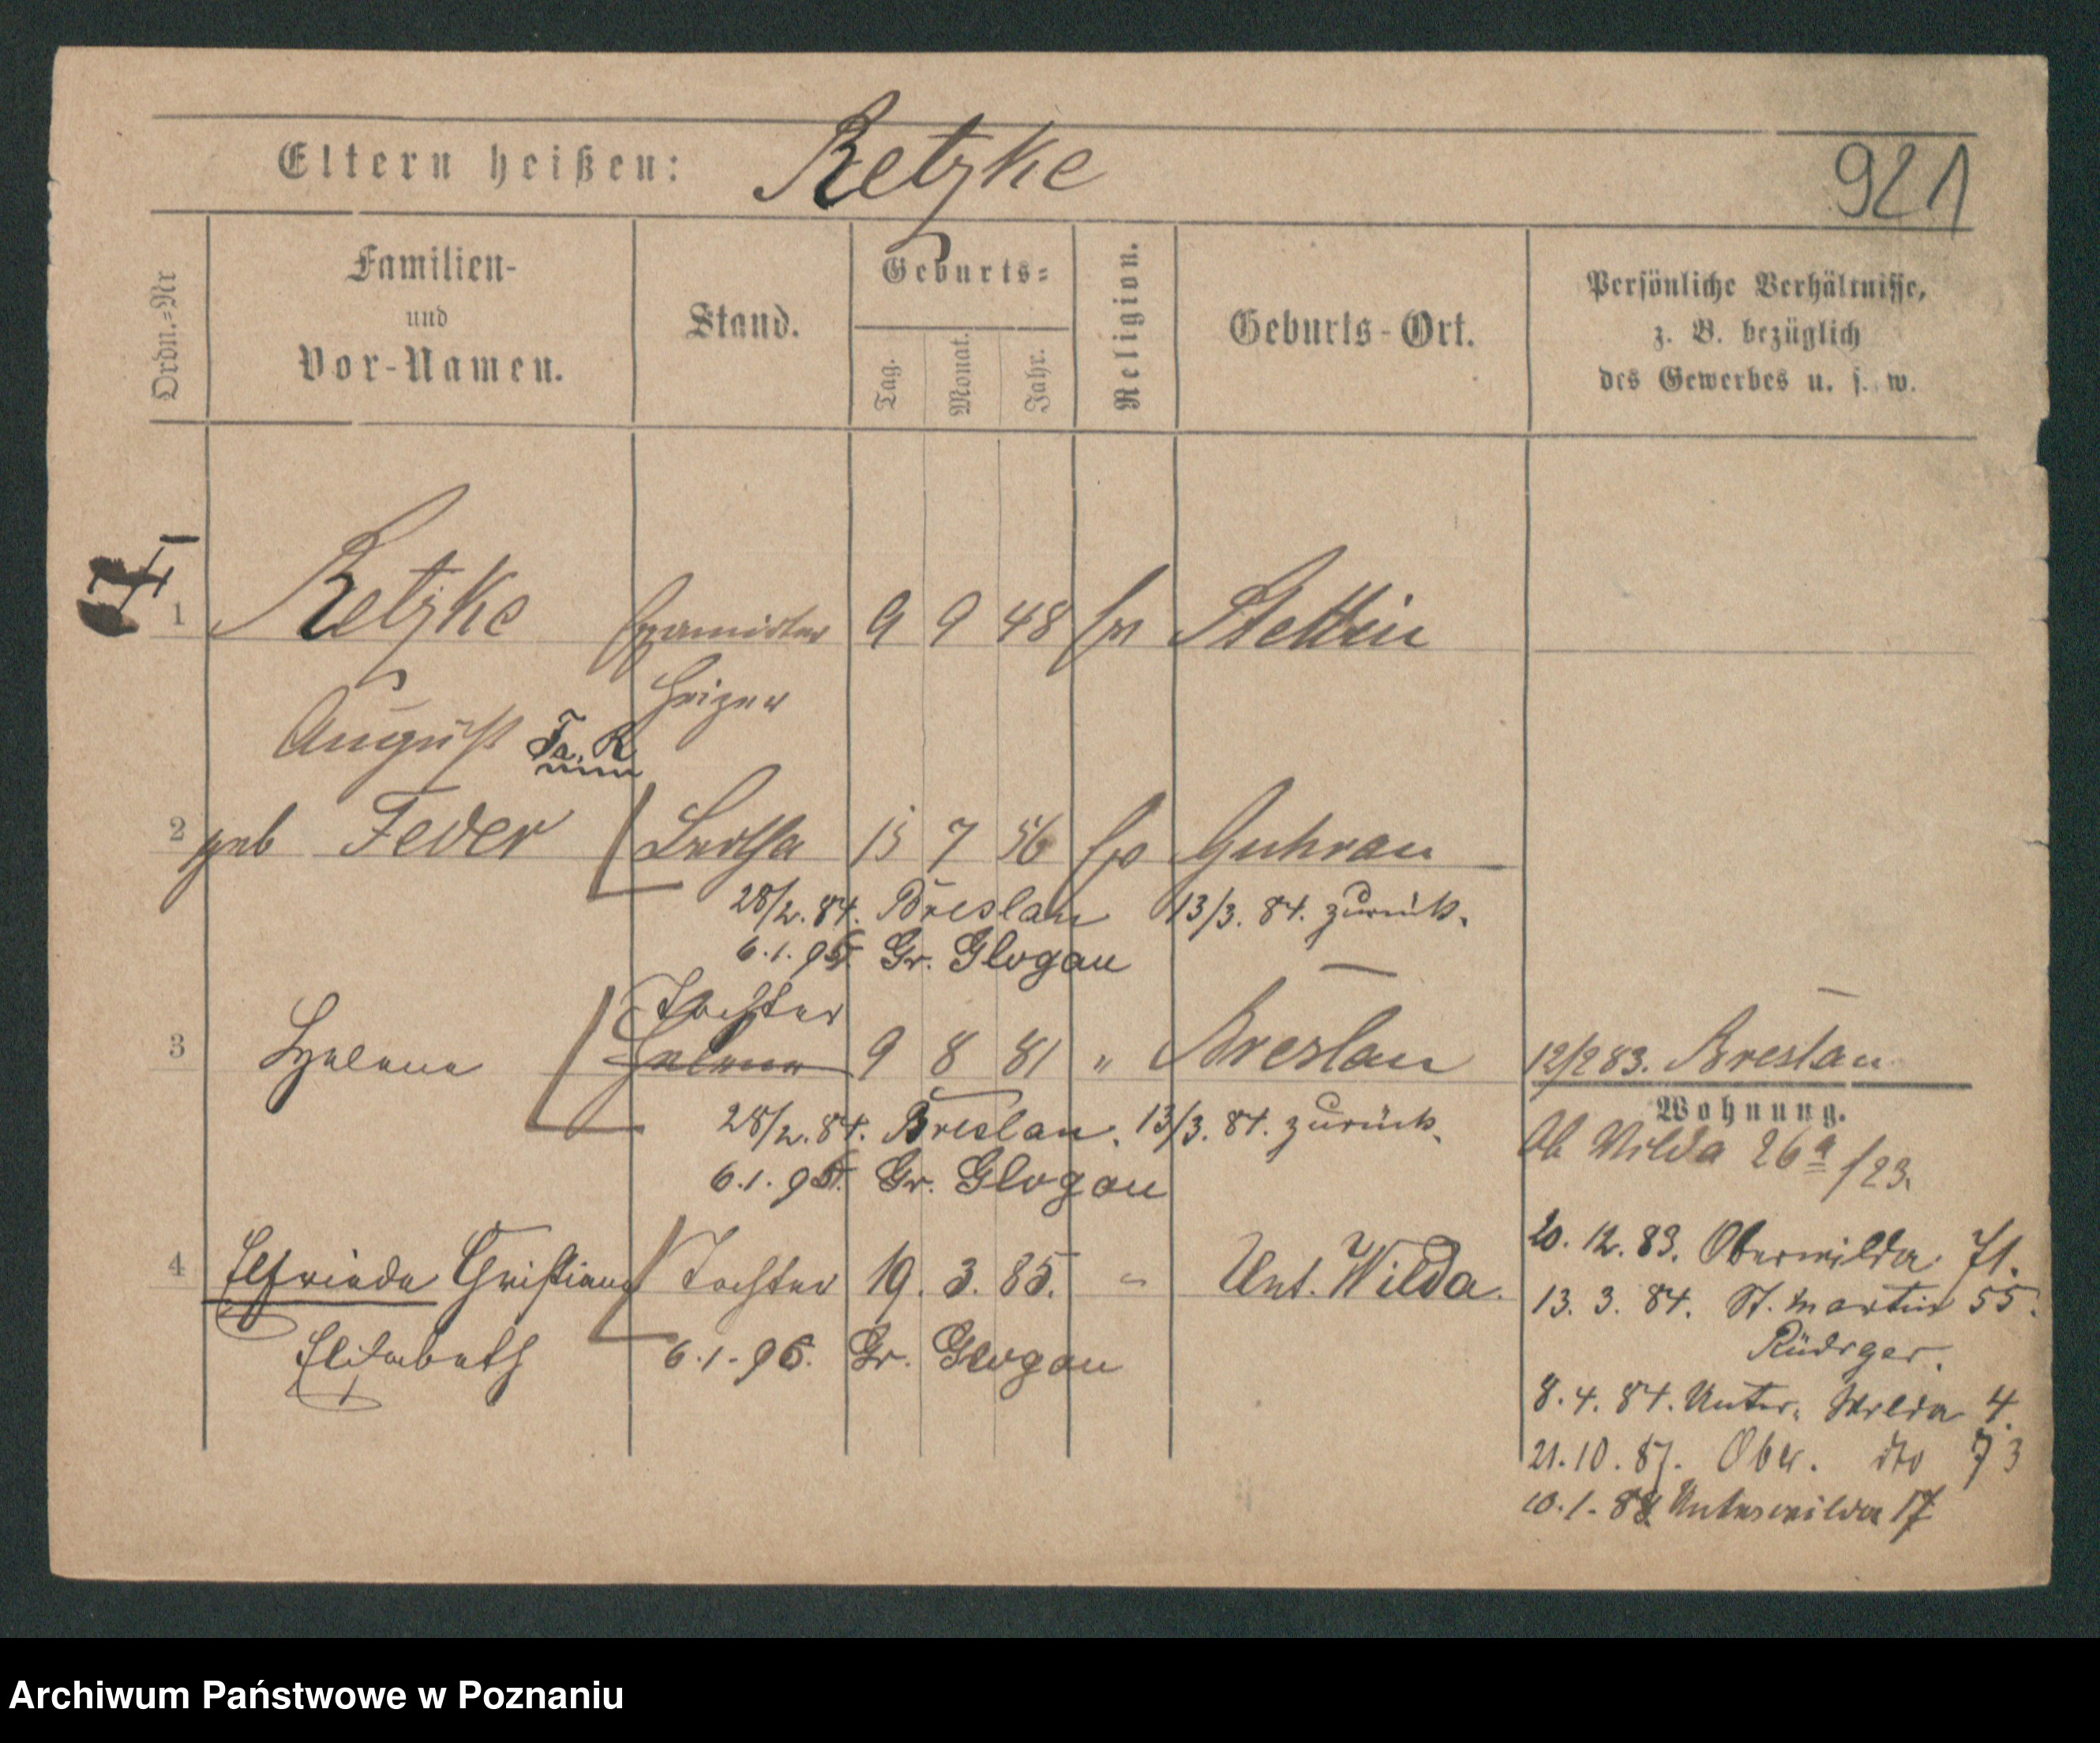 Eltern heißen: Retzke
921
Ordn.=Nr
Familien-
und
Vor-Namen.
Stand.
Geburts=
Tag.
Monat.
Jahr.
Religion.
Geburts-Ort.
Persönliche Verhältnisse,
z. B. bezüglich
des Gewerbes u. s. w.
1 Retzke 9 9 48 Stettin
Heizer
August Fa. R
2 geb Feder Bertha 15 7 56 Guhrau
28/2. 84. Breslau 13/3. 84. zurück.
6.1.95. Gr. Glogau
Tochter
3 Helene Helene 9 8 81 " Breslau 12/2 83. Breslau
Wohnung.
28/2. 84. Breslau. 13/3. 84. zurück.
Ob Wilda 26a /23.
6.1.95. Gr. Glogau
20. 12. 83. Oberwilda 71.
4 Elfriede Christiane Tochter 19. 3. 85. " Unt. Wilda.
13. 3. 84. St. Martin 55.
Rüdiger.
Elisabeth 6.1.95. Gr. Glogau
8. 4. 84. Unter. Wilda 4.
21. 10. 87. Ober. dto 73
10. 1. 88 Unterwilda 17
Archiwum Państwowe w Poznaniu